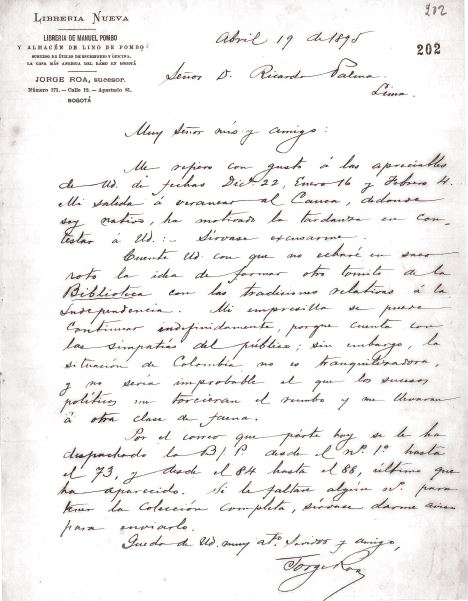 202
202
LIBRERIA NUEVA
LIBRERIA DE MANUEL POMBO
Y ALMACÉN DE LINO DE POMBO
SURTIDO DE ÚTILES DE ESCRITORIO Y OFICINA,
LA CASA MÁS ANTIGUA DEL RAMO EN BOGOTÁ
JORGE ROA, sucesor.
Número 171.—Calle 12.—Apartado 81.
BOGOTÁ
Abril 19 de 1895
Señor D. Ricardo Palma.
Lima.
Muy Señor mío y amigo:
Me refiero con gusto á las apreciables
de Ud. de fechas Dicre. 22, Enero 16 y Febrero 4.
Mi salida á veranear al Cauca, de donde
soy nativo, ha motivado la tardanza en con-
testar á Ud:— Sírvase excusarme.
Cuente Ud con que no echaré en saco
roto la idea de formar otro tomito de la
Biblioteca con las tradiciones relativas á la
Independencia. Mi empresilla se puede
continuar indefinidamente, porque cuenta con
las simpatías del público; sin embargo, la
situación de Colombia no es tranquilizadora,
y no sería improbable el que los sucesos
políticos me torcieran el rumbo y me llevaran
á otra clase de faena.
Por el correo que parte hoy se le ha
despachado la B/P desde el nº 1º hasta
el 73, y desde el 84 hasta el 88, último que
ha aparecido. Si le faltare algún nº para
tener la Colección Completa, sírvase darme aviso
para enviarlo.
Quedo de Ud. muy atº. Servidor y amigo,
Jorge Roa